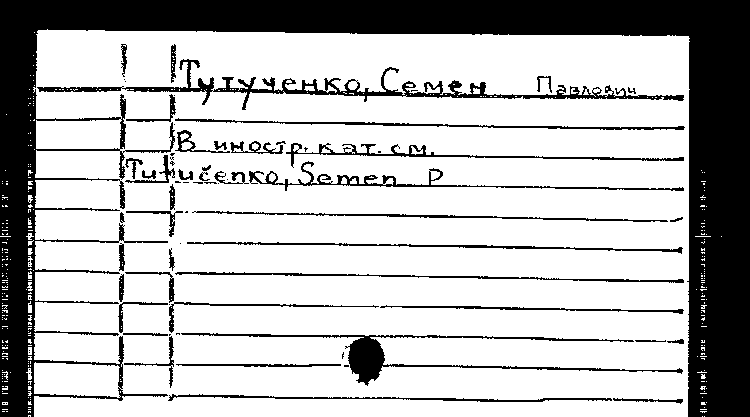 Тутученко, Семен Павлович
В иностр. кат. см.
Tutučenko, Semen P